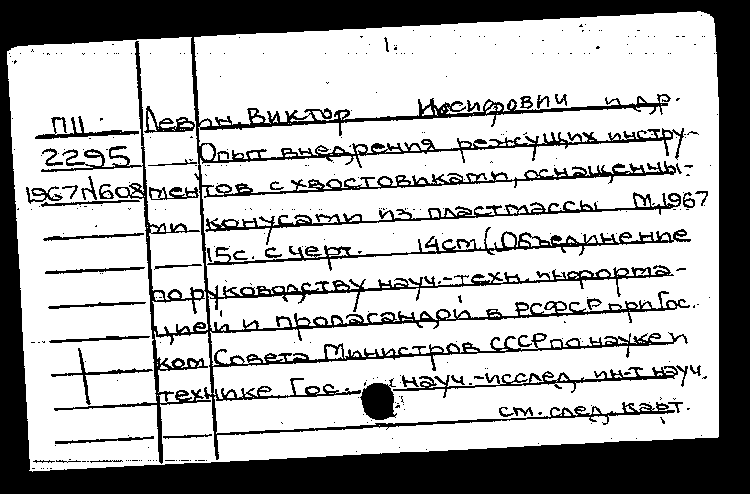 1.
П11 Левин, Виктор Иосифович и др.
2295 Опыт внедрения режущих инстру-
1967 N608 ментов с хвостовиками, оснащенны-
ми конусами из пластмассы М, 1967
15с. с черт. 14см (Объединение
по руководству науч.-техн. информа-
цией и пропагандой в РСФСР при Гос.
ком Совета Министров СССР по науке и
технике Гос. науч.-исслед. ин-т науч.
см. след. карт.